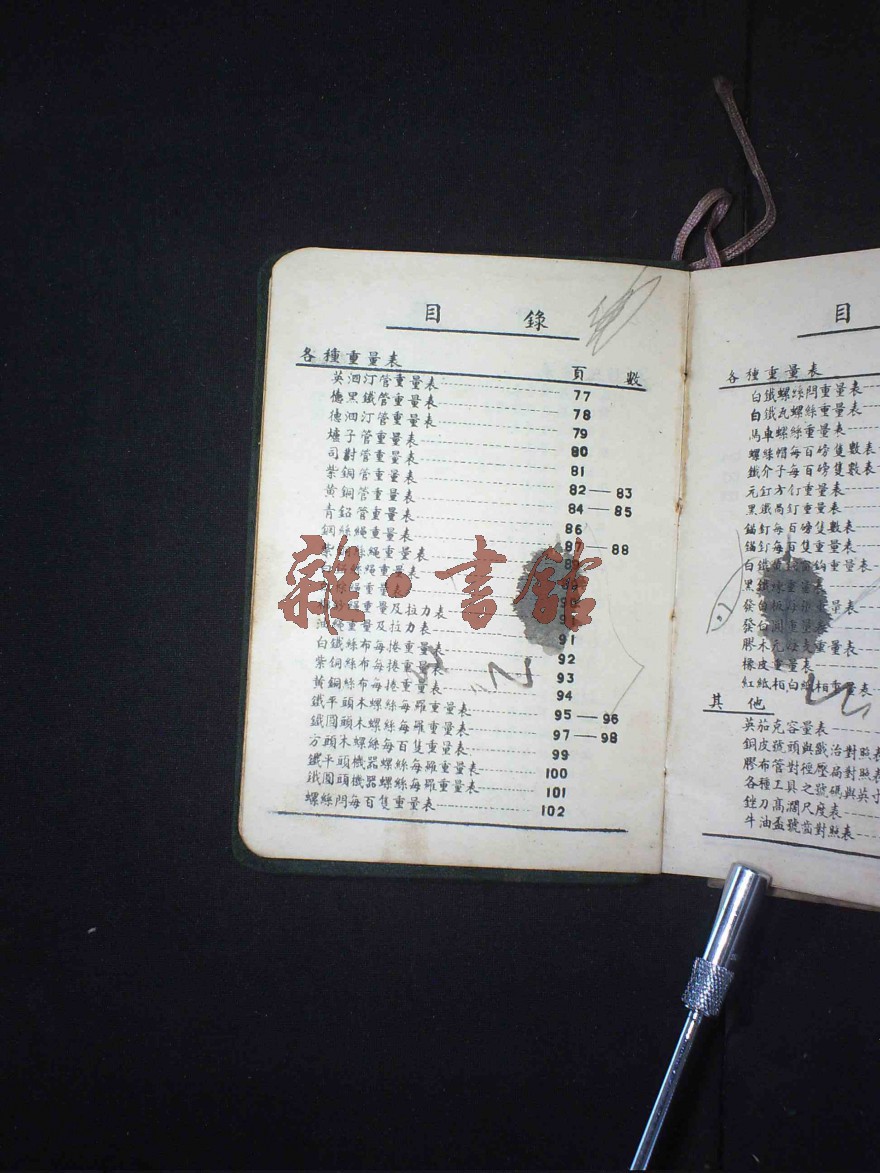 目 錄
各種重量表 頁 數
英泗汀管重量表 77
德黑鐵管重量表 78
德泗汀管重量表 79
爐子管重量表 80
司對管重量表 81
紫銅管重量表 82—83
黃銅管重量表 84—85
青鉛管重量表 86
鋼絲繩重量表 87—88
紫銅絲繩重量表
繩重量表
繩重量表 90
繩重量及拉力表 91
繩重量及拉力表 91
白鐵絲布每捲重量表 92
紫銅絲布每捲重量表 93
黃銅絲布每捲重量表 94
鐵平頭木螺絲每羅重量表 95—96
鐵圓頭木螺絲每羅重量表 97—98
方頭木螺絲每百隻重量表 99
鐵平頭機器螺絲每羅重量表 100
鐵圓頭機器螺絲每羅重量表 101
螺絲閂每百隻重量表 102
雜·書館
目
各種重量表
白鐵螺絲閂重量表
白鐵瓦螺絲重量表
馬車螺絲重量表
螺絲帽每百磅隻數表
鐵介子每百磅隻數表
元釘方釘重量表
黑鐵扁釘重量表
錨釘每百磅隻數表
錨釘每百隻重量表
白鐵 鈎重量表
黑鐵 重量表
重量表
重量表
膠木 重量表
橡皮重量表
紅紙柏白 柏重量表
其 他
英茄克容量表
銅皮號頭與 對照表
膠布管對徑壓扁對照表
各種工具之號碼與英寸
銼刀高濶尺度表
牛油盃號齒對照表